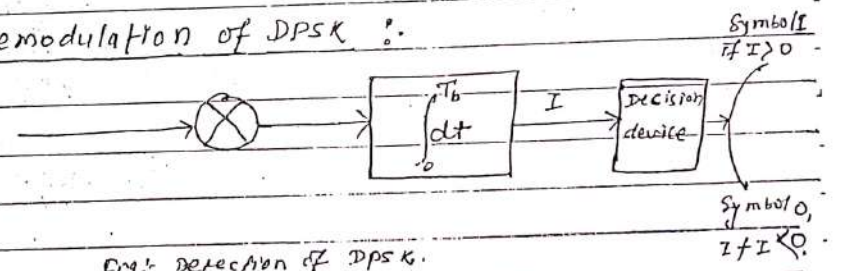 emodulation of DPSK :.
Symbol 1
if I>0
Tb
∫ dt
0
I
Decision
device
Symbol 0,
if I<0.
Fig:- Detection of DPSK.